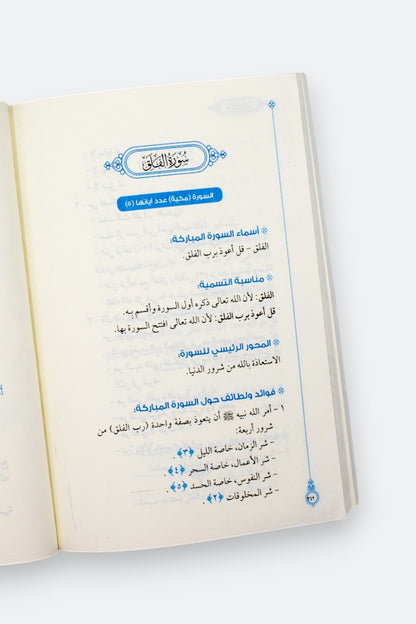 سُورَةُ الفَلَقِ
السورة (مكية) عدد آياتها (٥)
أسماء السورة المباركة:
الفلق – قل أعوذ برب الفلق.
مناسبة التسمية:
الفلق: لأن الله تعالى ذكره أول السورة وأقسم به.
قل أعوذ برب الفلق: لأن الله تعالى افتتح السورة بها.
المحور الرئيسي للسورة:
الاستعاذة بالله من شرور الدنيا.
فوائد ولطائف حول السورة المباركة:
١ – أمر الله نبيه ﷺ أن يتعوذ بصفة واحدة (رب الفلق) من
شرور أربعة:
– شر الزمان، خاصة الليل ﴿٣﴾.
– شر الأعمال، خاصة السحر ﴿٤﴾.
– شر النفوس، خاصة الحسد ﴿٥﴾.
– شر المخلوقات ﴿٢﴾.